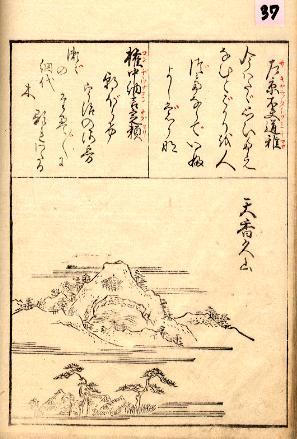 37
左京大夫道雅
今はたゞおもひたえ
なむとばかりを人
づてならでいふ
よしもがな
権中納言定頼
朝ぼらけ
宇治の川霧
たえ〲に
あらはれわたる
瀬〲の
網代
木
天香久山